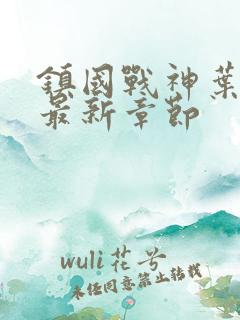 鎮國戰神葉
最新章節
wuli花兮
未经同意禁止转载